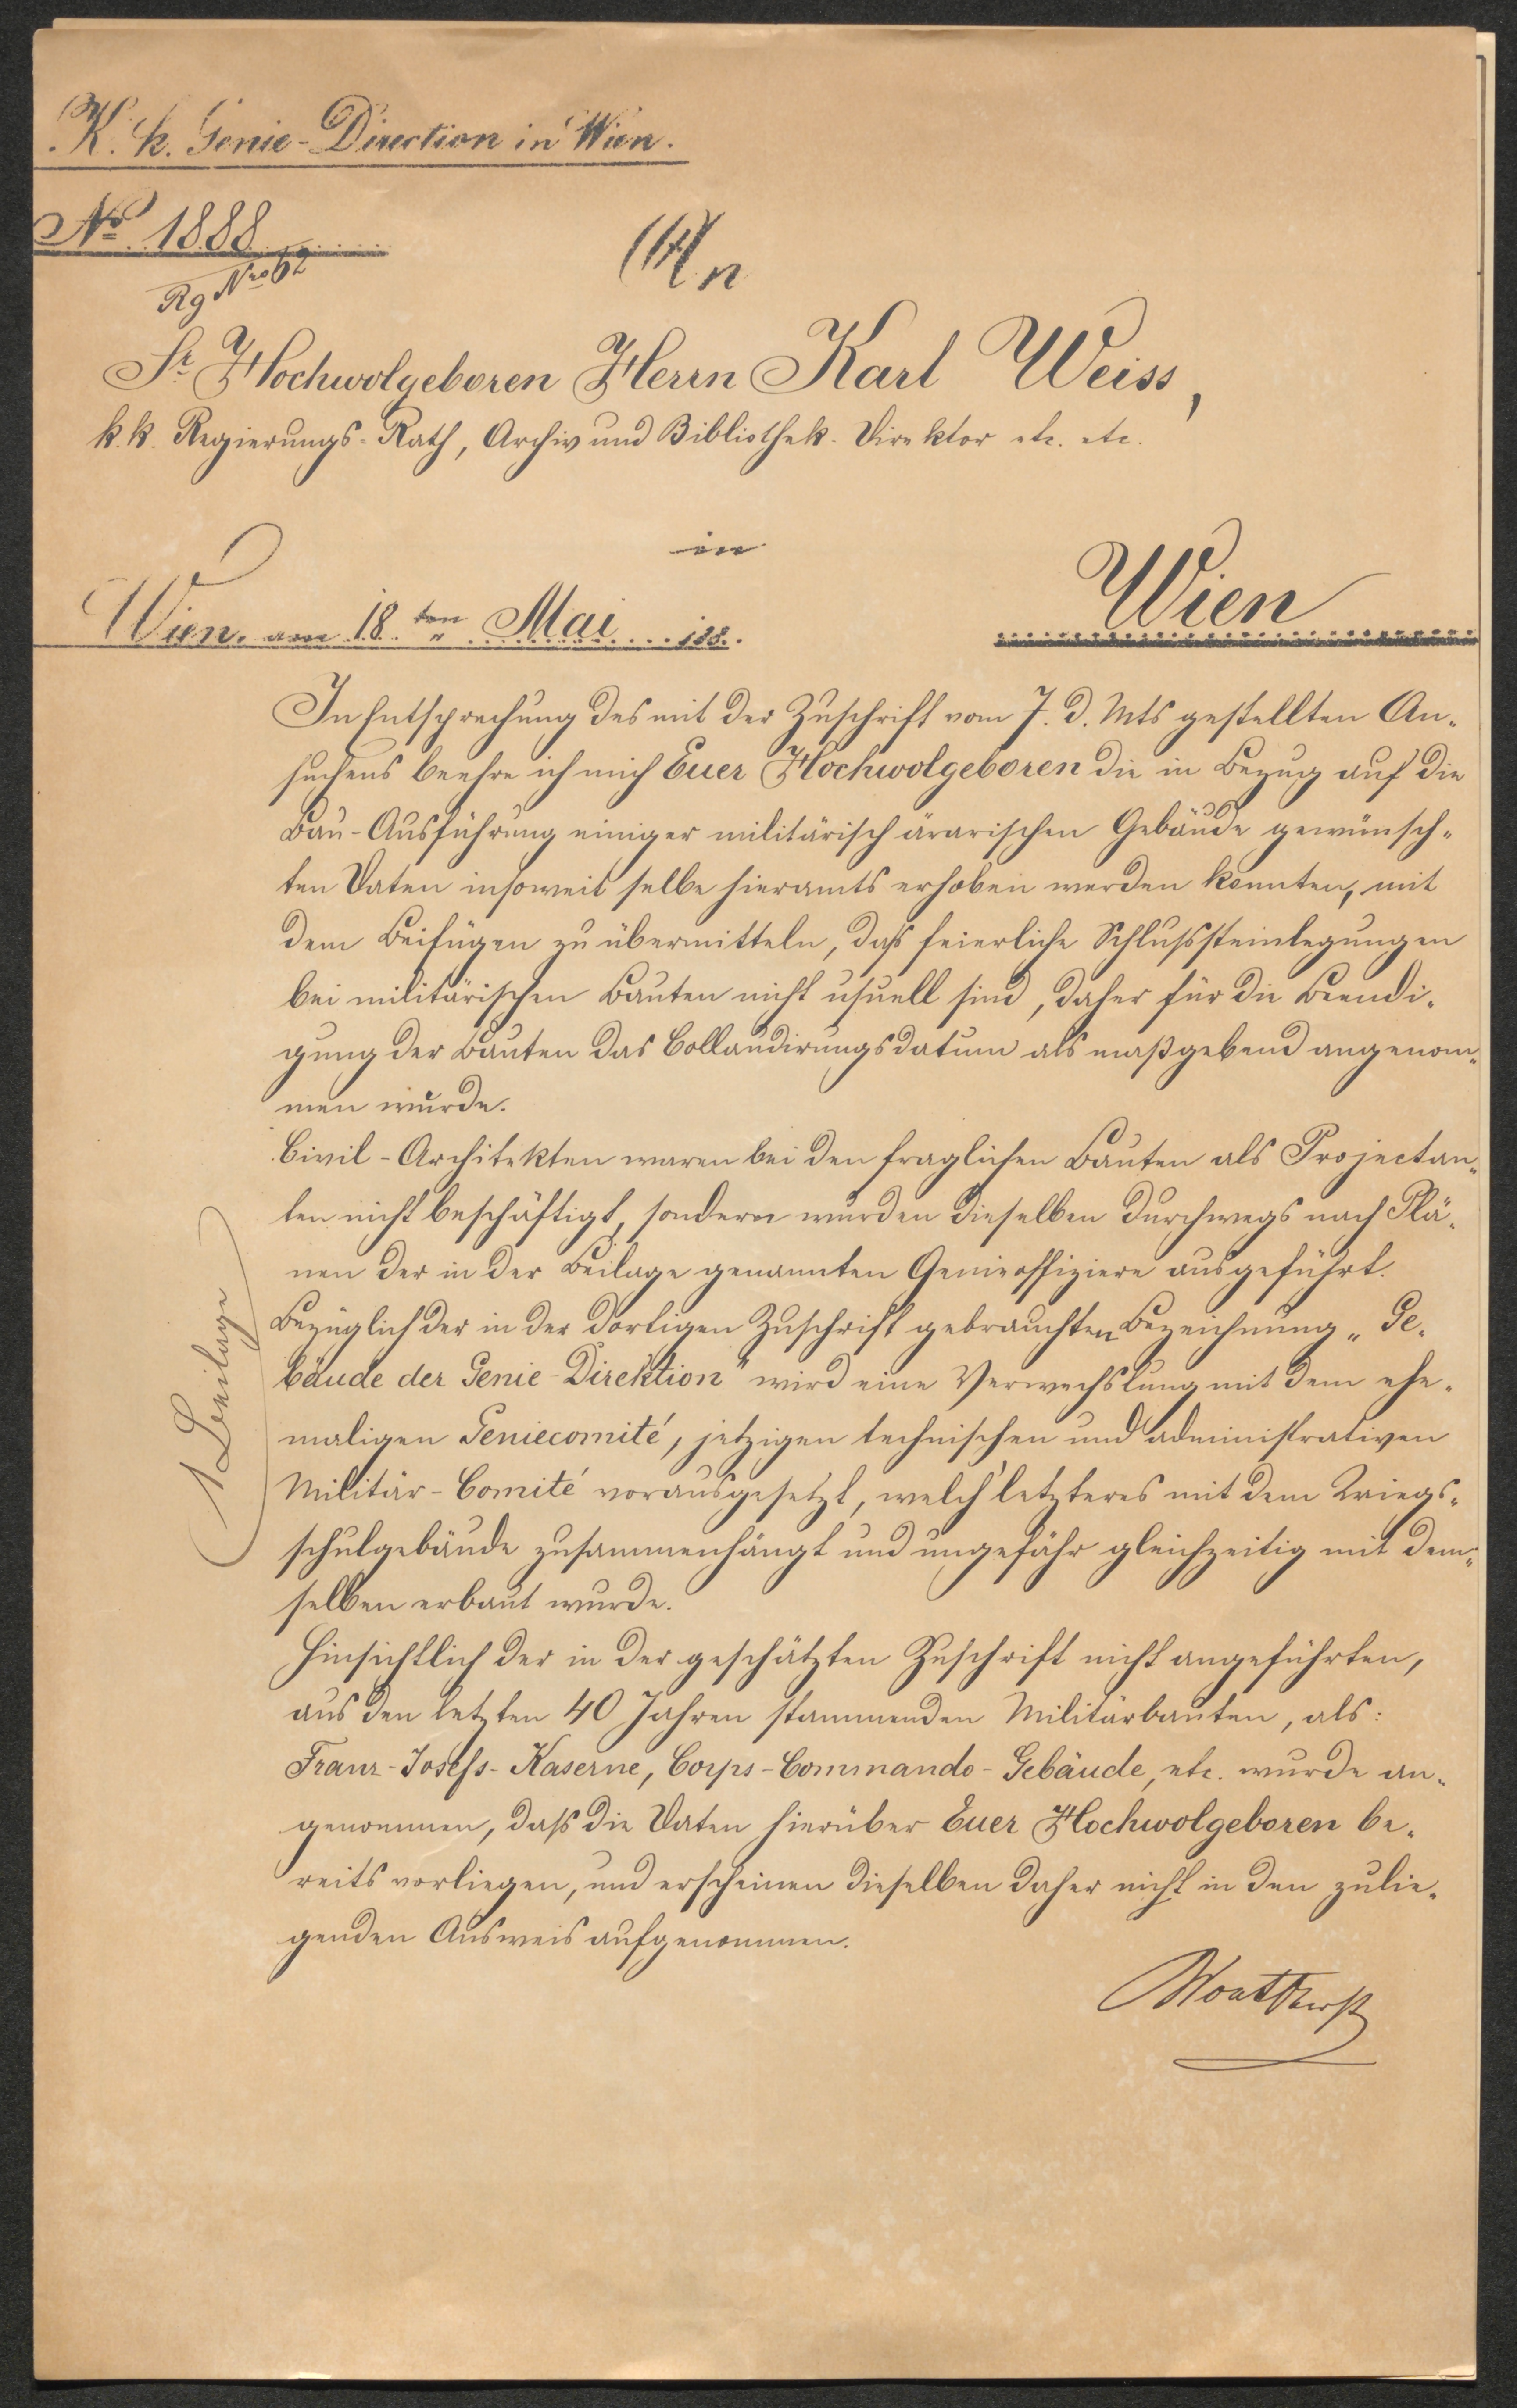 K. k. Genie-Direction in Wien.
No. 1888
Rg Nro 62
An
Sr. Hochwolgeboren Herrn Karl Weiss,
k. k. Regierungs-Rath, Archiv und Bibliothek-Direktor etc. etc.
in
Wien
Wien, am 18ten Mai 188.
In Entsprechung des mit der Zuschrift vom 7. d. Mts gestellten An-
suchens beehre ich mich Euer Hochwolgeboren die in Bezug auf die
Bau-Ausführung einiger militärisch ärarischen Gebäude gewünsch-
ten Daten insoweit selbe hieramts erhoben werden konnten, mit
dem Beifügen zu übermitteln, daß feierliche Schlußsteinlegungen
bei militärischen Bauten nicht usuell sind, daher für die Beendi-
gung der Bauten das Collaudirungsdatum als maßgebend angenom-
men wurde.
Civil-Architekten waren bei den fraglichen Bauten als Projectan-
ten nicht beschäftigt, sondern wurden dieselben durchwegs nach Plä-
nen der in der Beilage genannten Genieoffiziere ausgeführt.
1 Beilage
Bezüglich der in der dortigen Zuschrift gebrauchten Bezeichnung „Ge-
bäude der Genie-Direktion" wird eine Verwechslung mit dem ehe-
maligen Geniecomité, jetzigen technischen und administrativen
Militär-Comité vorausgesetzt, welch' letzteres mit dem Kriegs-
schulgebäude zusammenhängt und ungefähr gleichzeitig mit dem-
selben erbaut wurde.
Hinsichtlich der in der geschätzten Zuschrift nicht angeführten,
aus den letzten 40 Jahren stammenden Militärbauten, als:
Franz-Josefs-Kaserne, Corps-Commando-Gebäude, etc. wurde an-
genommen, daß die Daten hierüber Euer Hochwolgeboren be-
reits vorliegen, und erscheinen dieselben daher nicht in den zulie-
genden Ausweis aufgenommen.